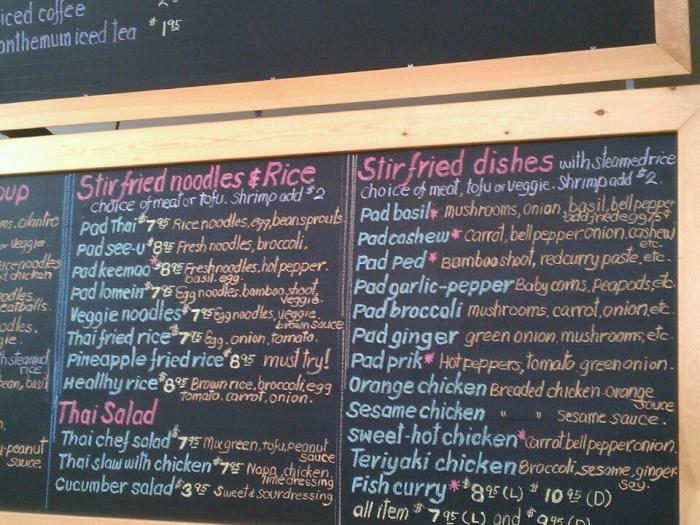 iced coffee
onthemum iced tea $1.95
oup
ms, cilantro
or veggie
rice noodles
d chicken
noodles
eatballs.
odles.
ie.
h steamed
rice.
ean, basil
n.
y-peanut
sauce.
Stir fried noodles & Rice
choice of meat or tofu. shrimp add $2
Pad Thai $7.95 Rice noodles, egg, bean sprouts
Pad see-u $8.95 Fresh noodles, broccoli.
Pad keemao* $8.95 Fresh noodles, hot pepper.
basil. egg.
Pad lomein $7.95 Egg noodles, bamboo shoot,
veggie.
Veggie noodles $7.95 Egg noodles, veggie,
brown sauce
Thai fried rice $7.95 Egg, onion, tomato.
Pineapple fried rice $8.95 must try!
Healthy rice $8.95 Brown rice, broccoli, egg
Tomato. carrot, onion.
Thai Salad
Thai chef salad $7.95 Mix green, tofu, peanut
sauce
Thai slaw with chicken $7.95 Napa, chicken,
lime dressing
Cucumber salad $3.95 Sweet & sour dressing.
Stir fried dishes with steamed rice
choice of meat, tofu or veggie. Shrimp add $2.
Pad basil* mushrooms, onion, basil, bell pepper
add fried egg 75¢
Pad cashew* Carrot, bell pepper onion, cashew
etc.
Pad Ped* Bamboo shoot, red curry paste, etc.
Pad garlic-pepper Baby corns, Peapods, etc.
Pad broccoli mushrooms, carrot, onion, etc
Pad ginger green onion, mushrooms, etc
Pad prik* Hot peppers, tomato, green onion.
Orange chicken Breaded chicken-orange
sauce
Sesame chicken " " Sesame sauce.
sweet-hot chicken* carrot bell pepper onion.
Teriyaki chicken Broccoli, sesame, ginger
soy.
Fish curry* $8.95 (L) $10.95 (D)
all item $7.95 (L) and $9.95 (D)